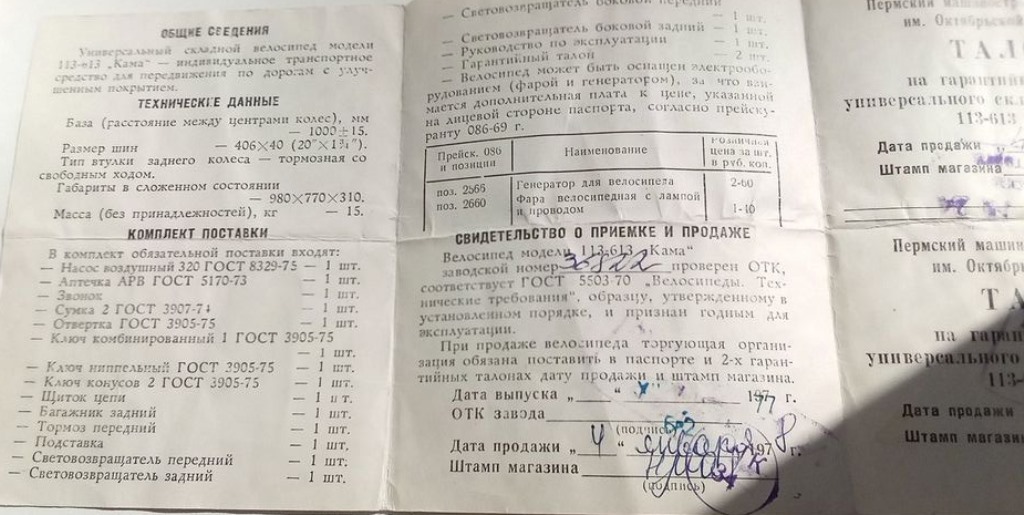 ОБЩИЕ СВЕДЕНИЯ
Универсальный складной велосипед модели
113-613 „Кама" — индивидуальное транспортное
средство для передвижения по дорогам с улуч-
шенным покрытием.
ТЕХНИЧЕСКИЕ ДАННЫЕ
База (расстояние между центрами колес), мм
— 1000±15.
Размер шин — 406×40 (20"×1¾").
Тип втулки заднего колеса — тормозная со
свободным ходом.
Габариты в сложенном состоянии
— 980×770×310.
Масса (без принадлежностей), кг — 15.
КОМПЛЕКТ ПОСТАВКИ
В комплект обязательной поставки входят:
— Насос воздушный 320 ГОСТ 8329-75 — 1 шт.
— Аптечка АРВ ГОСТ 5170-73 — 1 шт.
— Звонок — 1 шт.
— Сумка 2 ГОСТ 3907-74 — 1 шт.
— Отвертка ГОСТ 3905-75 — 1 шт.
— Ключ комбинированный 1 ГОСТ 3905-75
— 1 шт.
— Ключ ниппельный ГОСТ 3905-75 — 1 шт.
— Ключ конусов 2 ГОСТ 3905-75 — 1 шт.
— Щиток цепи — 1 шт.
— Багажник задний — 1 шт.
— Тормоз передний — 1 шт.
— Подставка — 1 шт.
— Световозвращатель передний — 1 шт.
— Световозвращатель задний — 1 шт.
— Световозвращатель боковой передний
— 1 шт.
— Световозвращатель боковой задний — 1 шт.
— Руководство по эксплуатации — 1 шт.
— Гарантийный талон — 2 шт.
— Велосипед может быть оснащен электрообо-
рудованием (фарой и генератором), за что взи-
мается дополнительная плата к цене, указанной
на лицевой стороне паспорта, согласно прейску-
ранту 086-69 г.
Прейск. 086 и позиции Наименование Розничная цена за шт. в руб. коп.
поз. 2565 Генератор для велосипеда 2-60
поз. 2660 Фара велосипедная с лампой
и проводом 1-40
СВИДЕТЕЛЬСТВО О ПРИЕМКЕ И ПРОДАЖЕ
Велосипед модели 113-613 „Кама"
заводской номер 36822 проверен ОТК,
соответствует ГОСТ 5503-70 „Велосипеды. Тех-
нические требования", образцу, утвержденному в
установленном порядке, и признан годным для
эксплуатации.
При продаже велосипеда торгующая органи-
зация обязана поставить в паспорте и 2-х гаран-
тийных талонах дату продажи и штамп магазина.
Дата выпуска „ " 1977 г.
ОТК завода
(подпись)
Дата продажи „4" января 1978 г.
Штамп магазина
(подпись)
Пермский машиностро
им. Октябрьской
ТАЛО
на гарантийн
универсального скл
113-613
Дата продажи
Штамп магазина
Пермский машин
им. Октябрь
ТА
на гаран
универсального
113-
Дата продажи
Штамп магазин